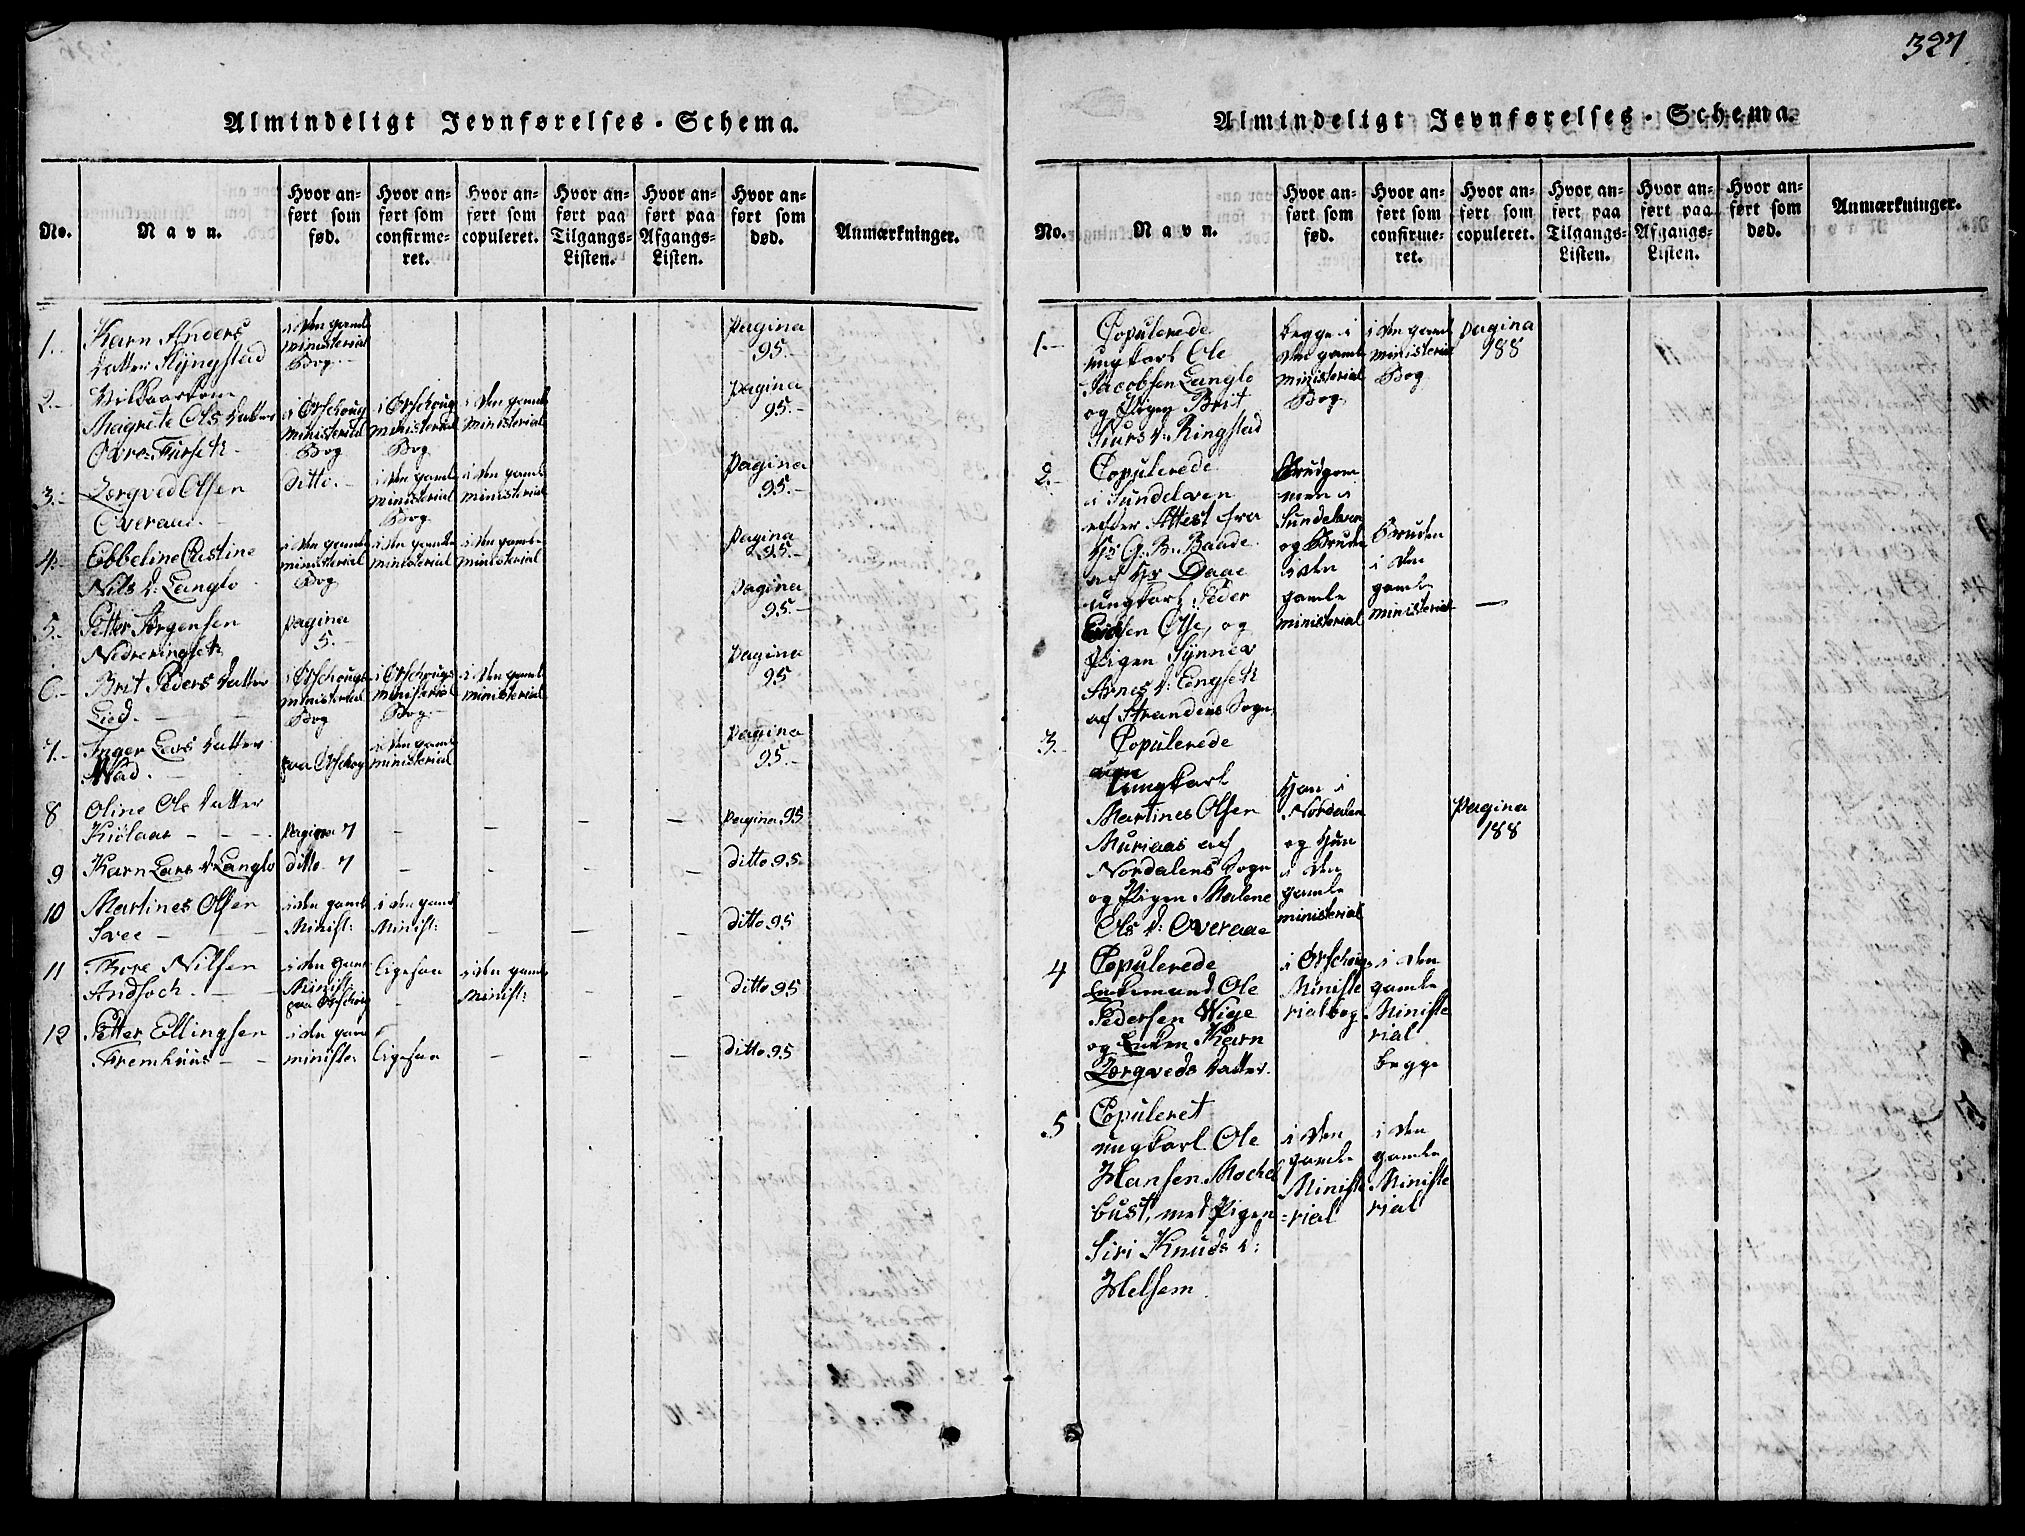 327
Almindeligt Jevnførelses-Schema.
No.
Navn.
Hvor an-
ført som
fød.
Hvor an-
ført som
confirme-
ret.
Hvor an-
ført som
copuleret.
Hvor an-
ført paa
Tilgangs-
Listen.
Hvor an-
ført paa
Afgangs-
Listen.
Hvor an-
ført som
død.
Anmærkninger.
1.
Karn Anders
datter Slÿngstad
i den gamle
ministerial
Bog.
Pagina
95.
2.
Magrete Ols datter
Øvre Furseth
i Ørschoug
ministerial
Bog
i Ørschoug
ministerial
Bog
i den gamle
ministerial
Pagina
95.
3.
Zergved Olsen
Overaae.
Ditto.
i den gamle
ministerial
Bog
i den gamle
ministerial
Pagina
95.
4.
Ebbeline Custine
Nils d: Langlo
i den gamle
ministerial
Bog
i den gamle
ministerial
i den gamle
ministerial
Pagina
95.
5.
Petter Jørgensen
Nedreringseth
Pagina
5.
Pagina
95.
6
Brit Peders datter
Lied.
i Ørschougs
ministerial
Bog
i Ørschougs
ministerial
Bog.
i den gamle
ministerial
Pagina
95
7.
Inger Lars datter
Wad.
paa Ørschog
i den gamle
ministerial
Pagina
95.
8
Oline Ole datter
Kiølaas
Pagina 7
Pagina 95
9
Karn Lars d. Langlo
ditto 7
ditto 95
10
Martines Olsen
Svee
i den gamle
Minist:
i den gamle
Minist:
ditto 95
11
Thore Nilsen
Andsoch.
i den gamle
Minist:
paa Ørschoug
ligesaa
i den gamle
Minist:
ditto 95
12
Petter Ellingsen
Fremhuus
i den gamle
ministe:
ligesaa
ditto 95
Almindeligt Jevnførelses-Schema.
No.
Navn.
Hvor an-
ført som
fød.
Hvor an-
ført som
confirme-
ret.
Hvor an-
ført som
copuleret.
Hvor an-
ført paa
Tilgangs-
Listen.
Hvor an-
ført paa
Afgangs-
Listen.
Hvor an-
ført som
død.
Anmærkninger.
1.
Copulerede
ungkarl Ole
Jacobsen Langlo
og Pigen Brit
Siurs d: Ringstad
begge i
den gamle
ministerial
Bog
i den gamle
ministerial
Bog
Pagina
188
2.
Copulerede
i Sundelven
efter Attest fra
Hr G. B. Baade
af Hr Daae
ungkarl Peder
Ericksen Øse, og
Pigen Sÿnnev
Arnes d: Engseth
af Strandens Sogn
Brudgom
men i
Sundelven
og Bruden
i den
gamle
ministerial
Bruden
i den
gamle
ministerial
3.
Copulerede
ungkarl
Martines Olsen
Muriaas af
Nordalens Sogn
og Pigen Malene
Ols d: Overaae
Han i
Nordalen
og Hun
i den
gamle
ministerial
Pagina
188
4
Copulerede
Enkemand Ole
Pedersen Wige
og Enken Karn
Zergveds datter.
i Ørschoug
Ministe
rialbog
i den
gamle
Ministe
rial
begge
5
Copuleret
ungkarl Ole
Hansen Mochel
bust, med Pigen
Siri Knuds d:
Helsem.
i den
gamle
Ministe
=rial
i den
gamle
Ministe
rial